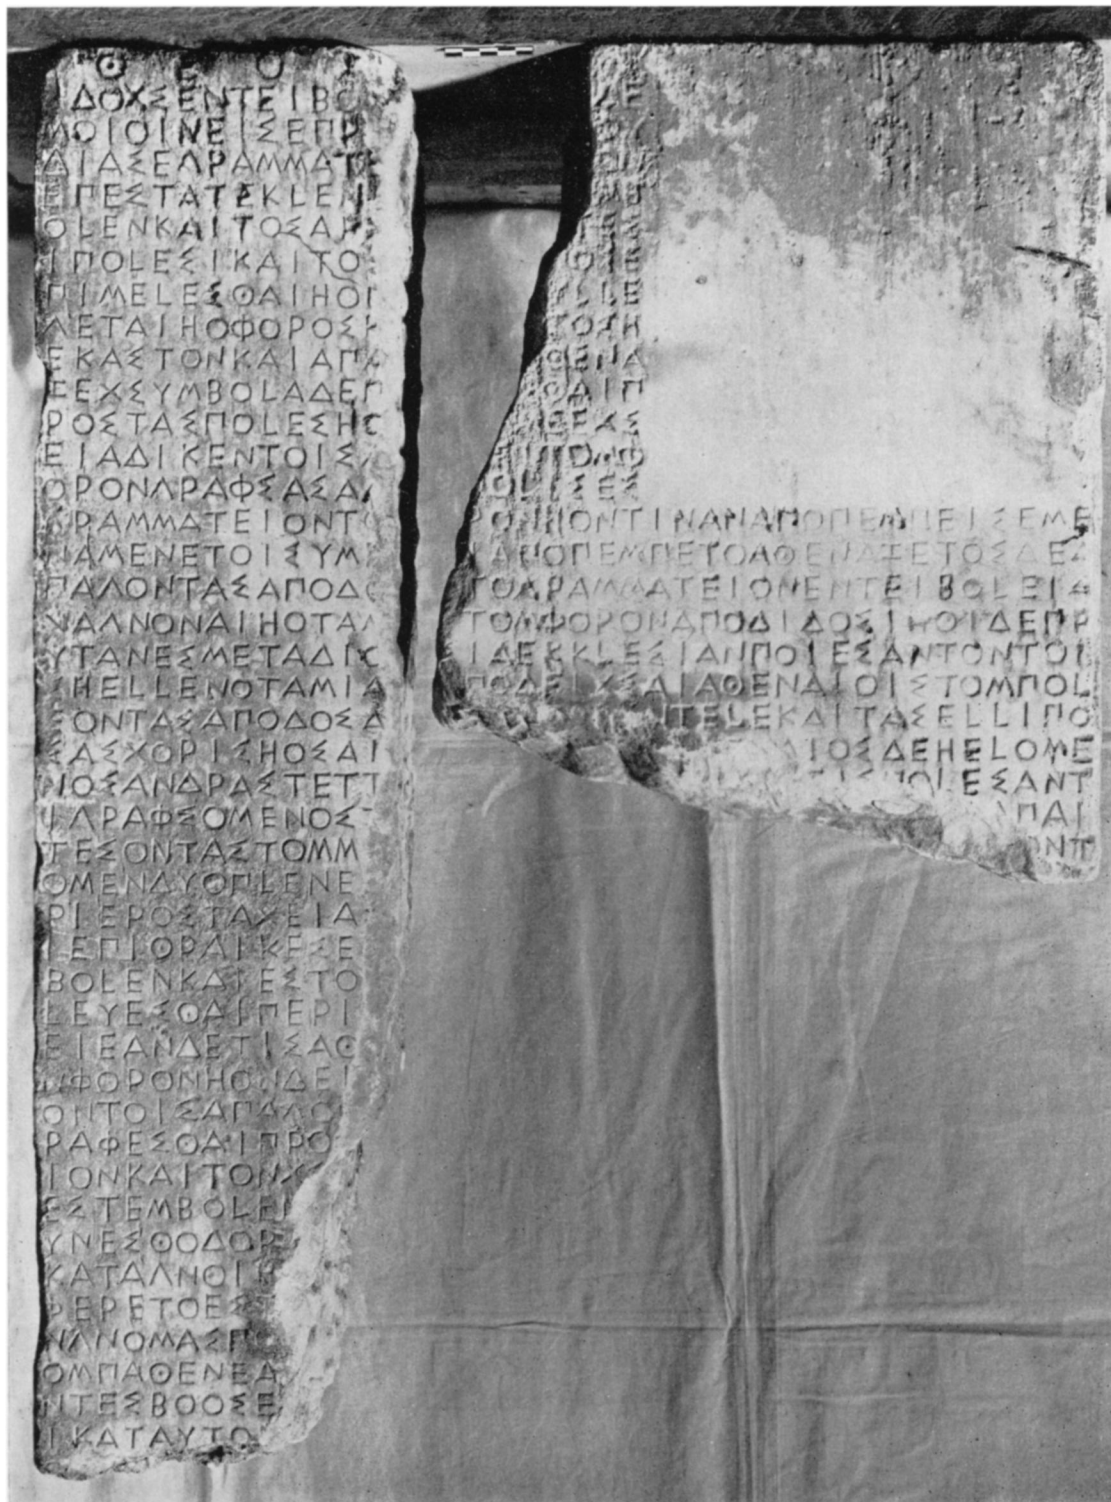 Θ Ε Ο Ι
ΔΟΧΣΕΝΤΕΙΒΟ
ΜΟΙΟΙΝΕΙΣΕΠΡ
ΔΙΑΣΕΓΡΑΜΜΑΤ
ΕΠΕΣΤΑΤΕΚΛΕΝΙ
ΟΛΕΝΚΑΙΤΟΣΑΡ
ΙΠΟΛΕΣΙΚΑΙΤΟ
ΠΙΜΕΛΕΣΘΑΙΗΟΠ
ΓΕΤΑΙΗΟΦΟΡΟΣΚ
ΕΚΑΣΤΟΝΚΑΙΑΠΑ
ΕΕΧΣΥΜΒΟΛΑΔΕΠ
ΡΟΣΤΑΣΠΟΛΕΣΗΟ
ΕΙΑΔΙΚΕΝΤΟΙΣ
ΟΡΟΝΓΡΑΦΣΑΣΑ
ΓΡΑΜΜΑΤΕΙΟΝΤΟ
ΝΑΜΕΝΕΤΟΙΣΥΜ
ΠΑΓΟΝΤΑΣΑΠΟΔΟ
ΝΑΓΝΟΝΑΙΗΟΤΑΝ
ΥΤΑΝΕΣΜΕΤΑΔΙΟ
ΗΕΛΛΕΝΟΤΑΜΙΑ
ΟΝΤΑΣΑΠΟΔΟΣΑ
ΣΑΣΧΟΡΙΣΗΟΣΑΙ
ΝΟΣΑΝΔΡΑΣΤΕΤΤ
ΓΡΑΦΣΟΜΕΝΟΣ
ΤΕΣΟΝΤΑΣΤΟΜΜ
ΟΜΕΝΔΥΟΠΛΕΝΕ
ΡΙΕΡΟΣΤΑΧΕΙΑ
ΙΕΠΙΘΡΑΙΚΕΣΕ
ΒΟΛΕΝΚΑΙΕΣΤΟ
ΛΕΥΕΣΘΑΙΠΕΡΙ
ΕΙΕΑΝΔΕΤΙΣΑΘ
ΝΦΟΡΟΝΗΟΝΔΕΙ
ΟΝΤΟΙΣΑΠΑΓΟ
ΡΑΦΕΣΘΑΙΠΡΟ
ΙΟΝΚΑΙΤΟΝΧ
ΕΣΤΕΜΒΟΛΕ
ΥΝΕΣΘΟΔΟΡ
ΚΑΤΑΓΝΟΙ
ΦΕΡΕΤΟΕΣ
ΝΑΝΟΜΑΣΠΟ
ΟΜΠΑΘΕΝΕΑ
ΝΤΕΣΒΟΟΣΕ
ΙΚΑΤΑΥΤΟ
ΟΣΗ
ΕΝΑ
ΑΙΠ
ΕΧΣ
ΡΟΝΗΟΝΤΙΝΑΝΑΠΟΠΕΜΠΕΙΣΕΜΕ
ΙΑΠΟΠΕΜΠΕΤΟΑΘΕΝΑΖΕΤΟΣΔΕΑ
ΤΟΓΡΑΜΜΑΤΕΙΟΝΕΝΤΕΙΒΟΛΕΙΑ
ΤΟΜΦΟΡΟΝΑΠΟΔΙΔΟΣΙΗΟΙΔΕΠΡ
ΙΔΕΚΚΛΕΣΙΑΝΠΟΙΕΣΑΝΤΟΝΤΟΙ
ΠΟΔΕΙΧΣΑΙΑΘΕΝΑΙΟΙΣΤΟΜΠΟΛ
ΝΤΕΛΕΚΑΙΤΑΣΕΛΛΙΠΟ
ΑΙΟΣΔΕΗΕΛΟΜΕ
ΙΣΠΟΛΕΣΑΝΤ
ΠΑΙ
ΟΝΤ